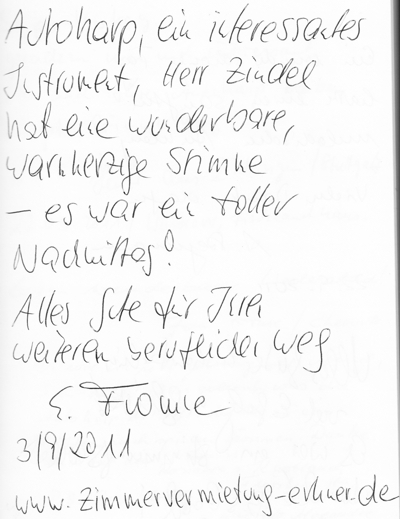 Autoharp, ein interessantes
Instrument, Herr Zindel
hat eine wunderbare,
warmherzige Stimme
– es war ein toller
Nachmittag!
Alles Gute für Ihren
weiteren beruflichen Weg
E.
3/9/2011
www.zimmervermietung-erkner.de